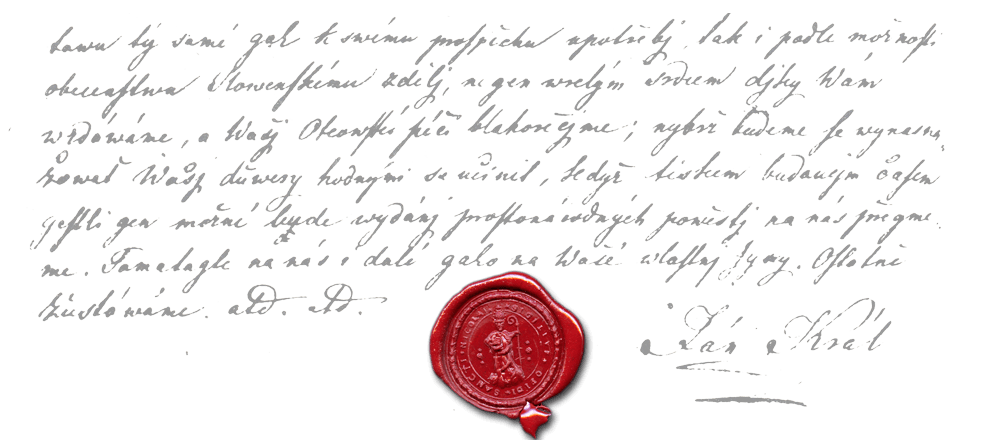 tawu tý samé gak k swému prospěchu upotřebj, tak i podle možnosti
obecenstwu Slowenskému zdělj, negen wrelým srdcem djky Wám
wzdáwáme, a Wašj Otcowské péči blahořečjme; nýbrž budeme se wynasna-
žowat Wašj důwery hodnými se učinit, kdyř tiskem budaucým časem
gestli gen možné bude wydánj prostonárodných powěstj na nás přegme-
me. Pamatugte na nás i dalé gako na Wašé wlastnj Syny. Ostatně
zůstáwáme. atd. atd.
Ján Král